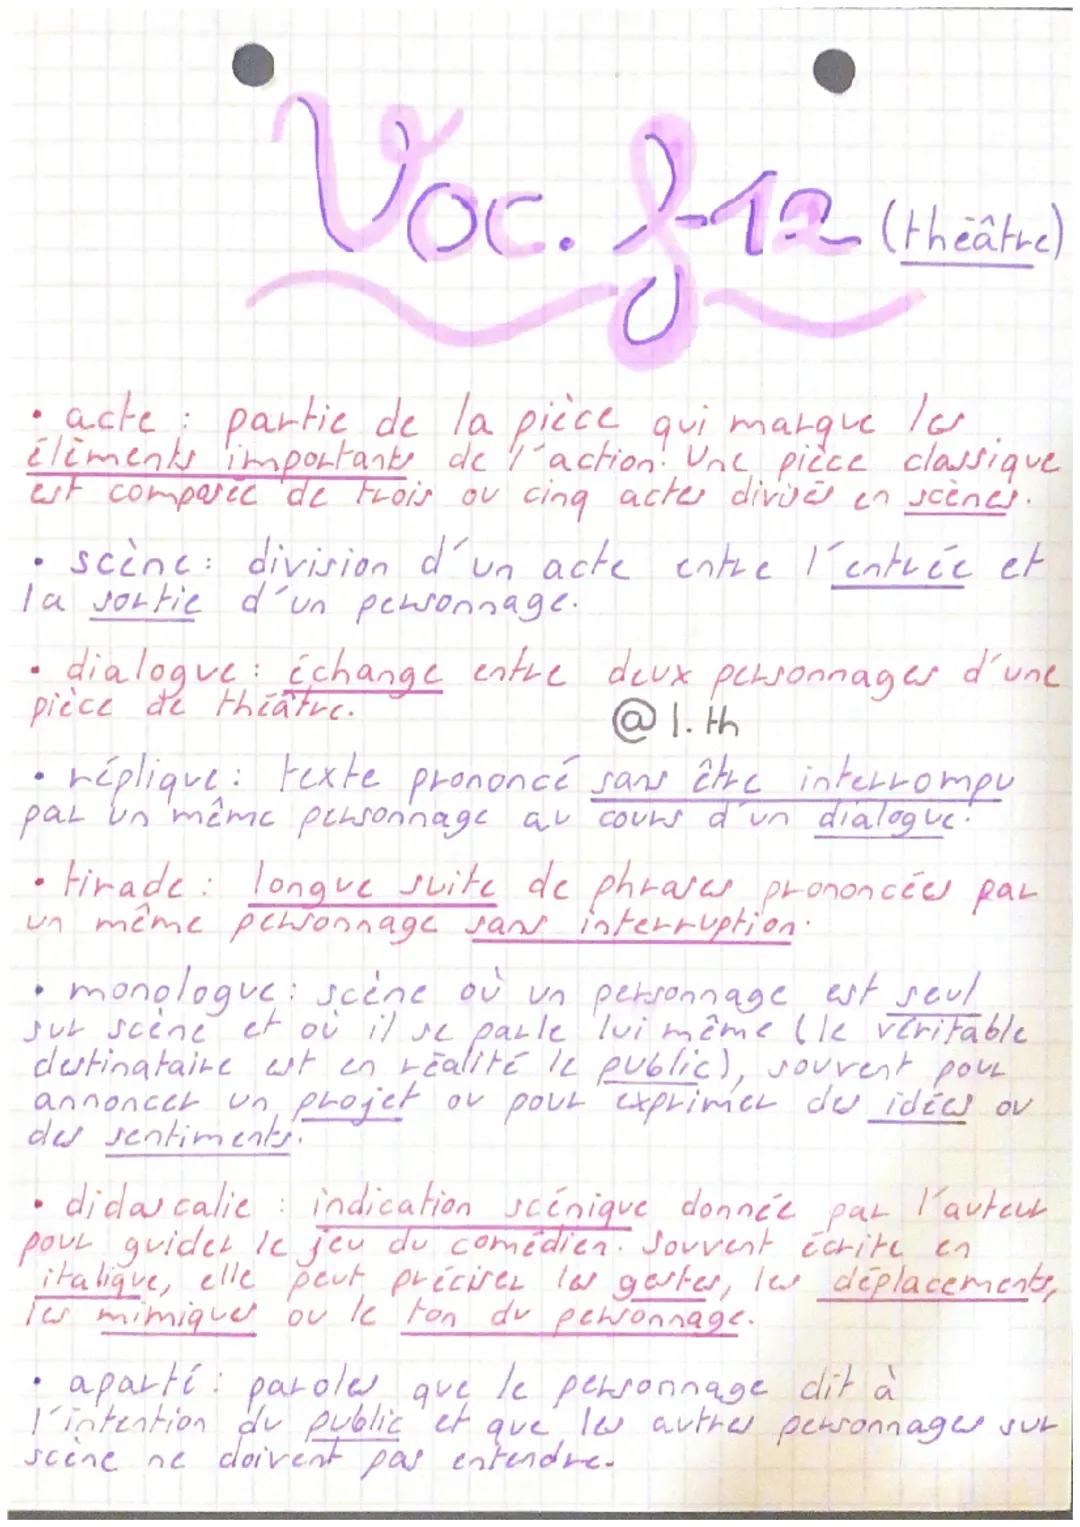 Voc. f-12 (théâtre)
• acte : partie de la pièce qui marque les
éléments importants de l'action. Une pièce classique
est composée de trois ou cinq actes divisés en scènes.
• scène : division d'un acte entre l'entrée et
la sortie d'un personnage.
• dialogue : échange entre deux personnages d'une
pièce de théâtre.
@ l. th
• réplique : texte prononcé sans être interrompu
par un même personnage au cours d'un dialogue.
• tirade : longue suite de phrases prononcées par
un même personnage sans interruption.
• monologue : scène où un personnage est seul
sur scène et où il se parle lui même (le véritable
destinataire est en réalité le public), souvent pour
annoncer un projet ou pour exprimer des idées ou
des sentiments.
• didascalie : indication scénique donnée par l'auteur
pour guider le jeu du comédien. Souvent écrite en
italique, elle peut préciser les gestes, les déplacements,
les mimiques ou le ton du personnage.
• aparté : paroles que le personnage dit à
l'intention du public et que les autres personnages sur
scène ne doivent pas entendre.